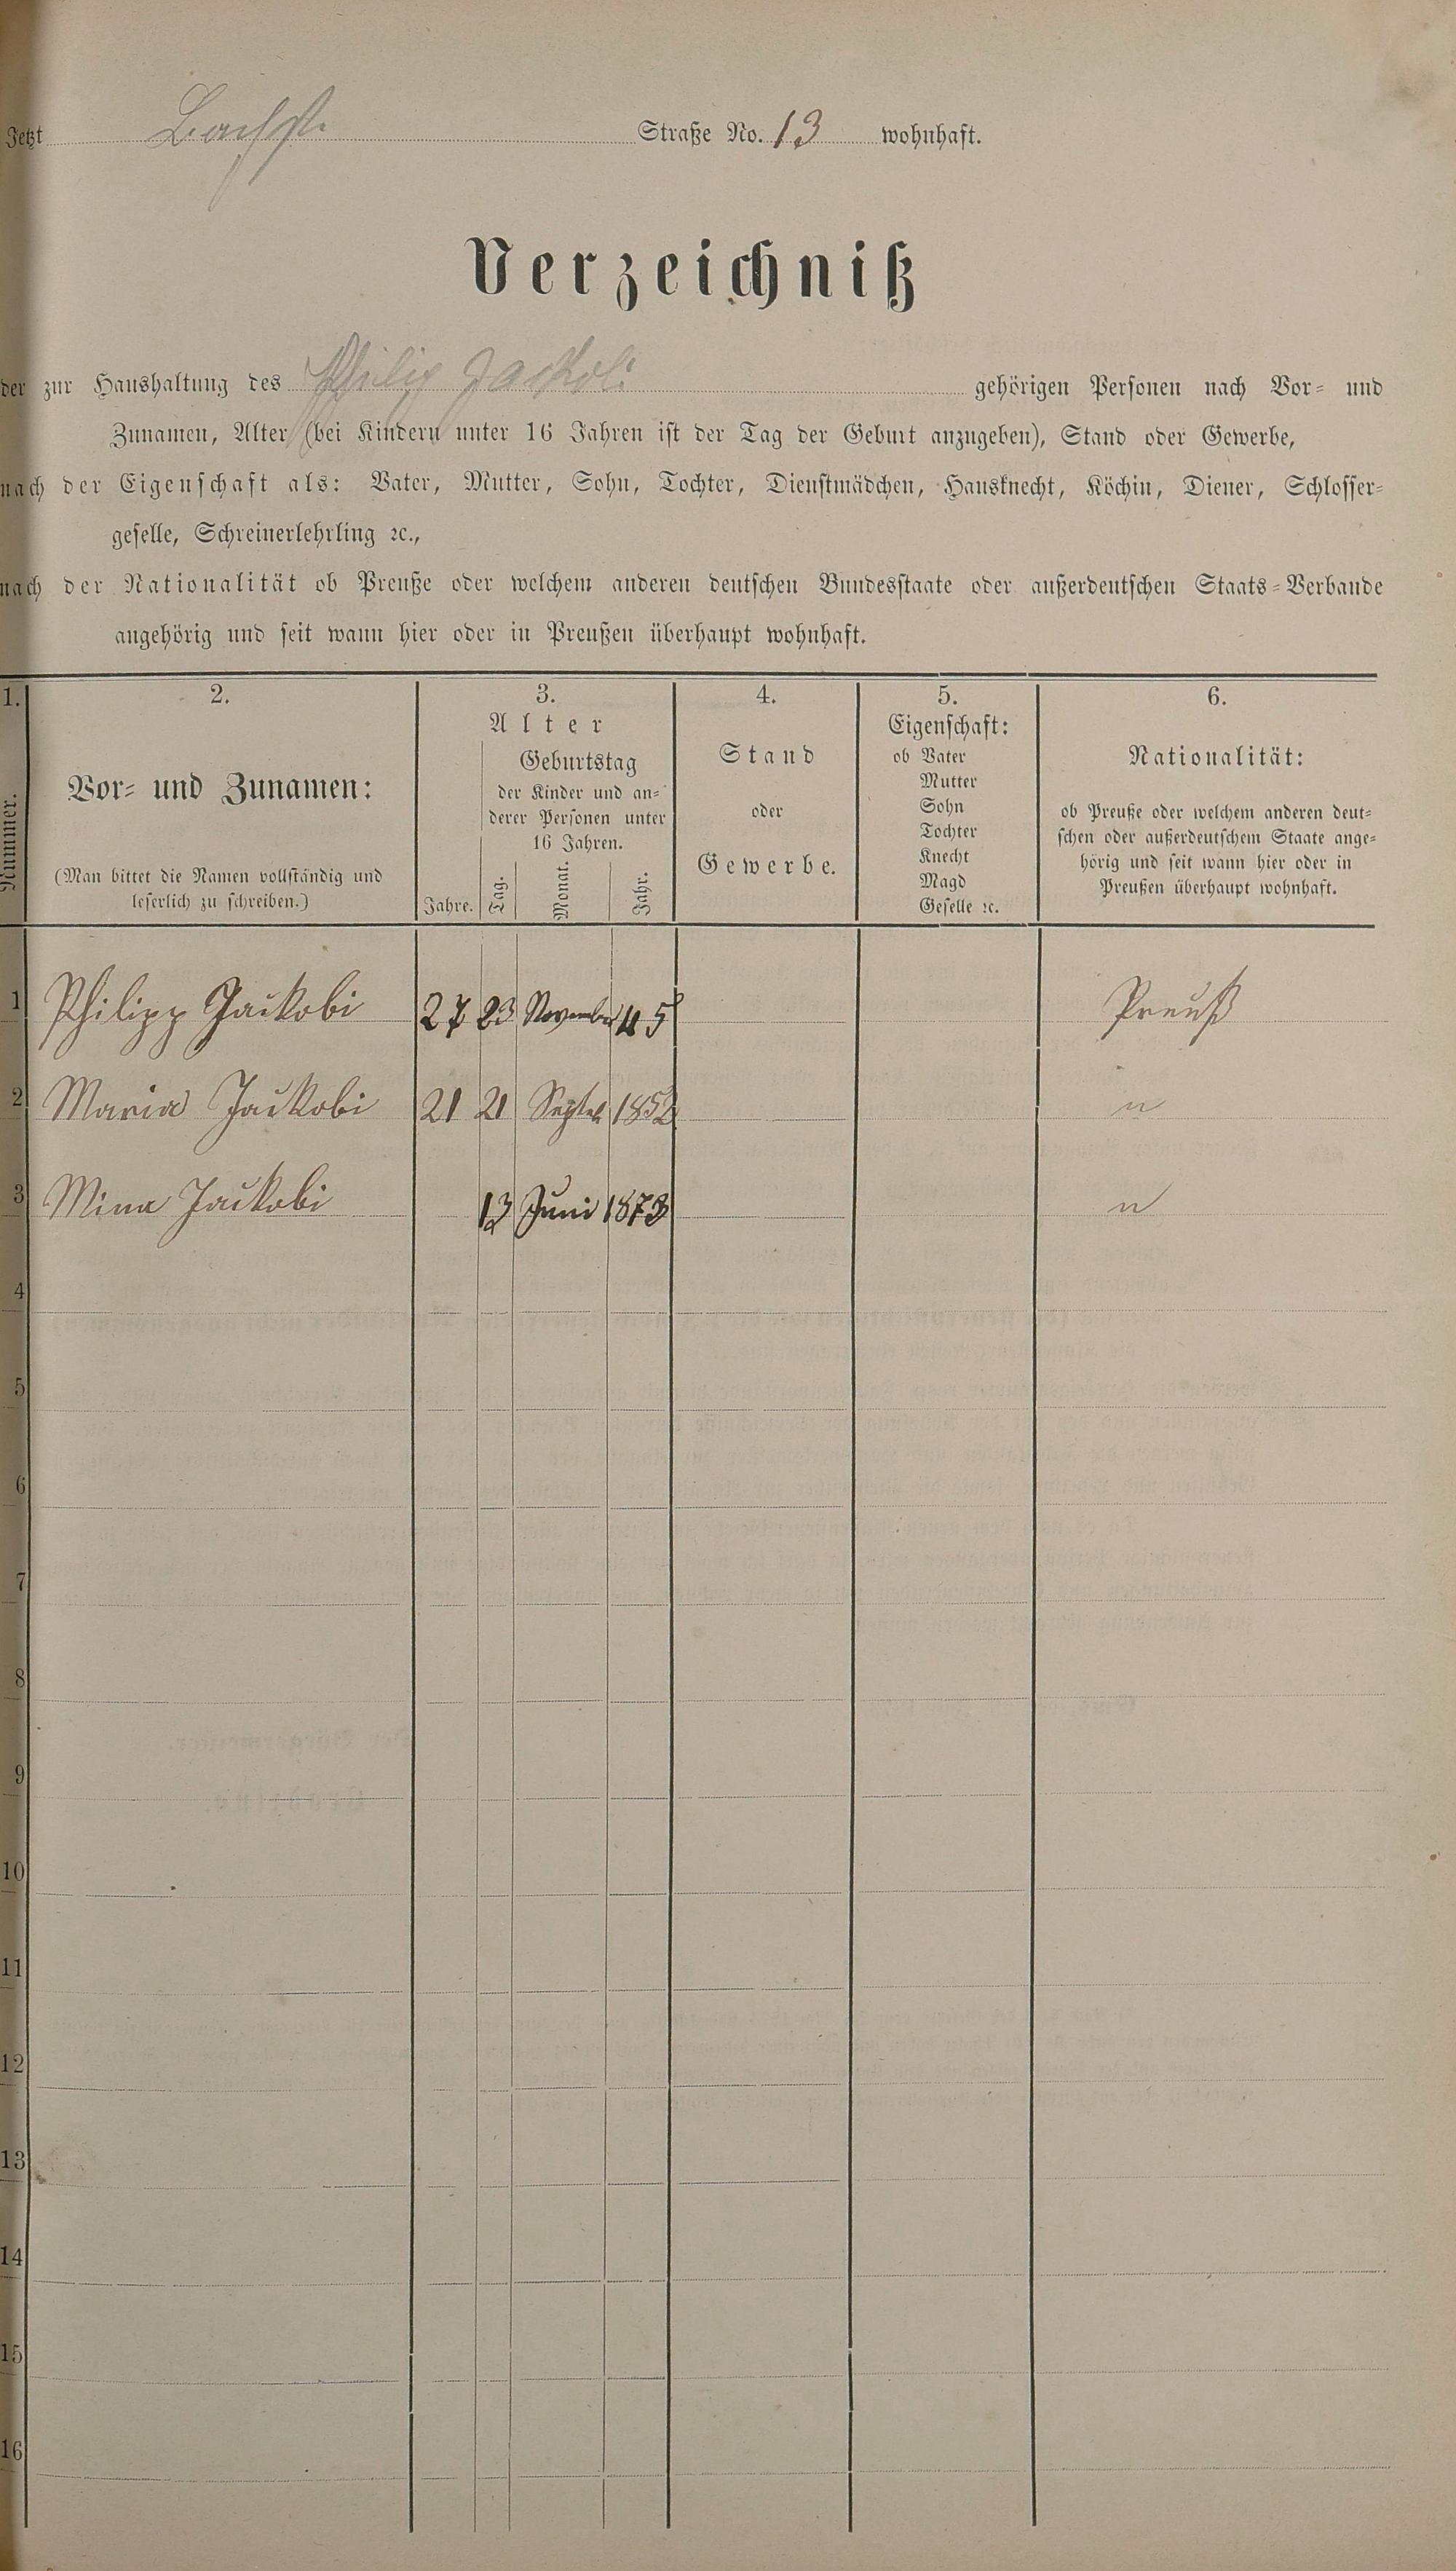 Jetzt Bachstr. Straße No. 13 wohnhaft.
Verzeichniß
der zur Haushaltung des Philip Jackobi gehörigen Personen nach Vor- und
Zunamen, Alter (bei Kindern unter 16 Jahren ist der Tag der Geburt anzugeben), Stand oder Gewerbe,
nach der Eigenschaft als: Vater, Mutter, Sohn, Tochter, Dienstmädchen, Hausknecht, Köchin, Diener, Schlosser-
geselle, Schreinerlehrling ꝛc.,
nach der Nationalität ob Preuße oder welchem anderen deutschen Bundesstaate oder außerdeutschen Staats-Verbande
angehörig und seit wann hier oder in Preußen überhaupt wohnhaft.
1. 2. 3. 4. 5. 6.
Nummer.
Vor- und Zunamen:
(Man bittet die Namen vollständig und
leserlich zu schreiben.)
Alter
Geburtstag
der Kinder und an-
derer Personen unter
16 Jahren.
Jahre. Tag. Monat. Jahr.
Stand
oder
Gewerbe.
Eigenschaft:
ob Vater
Mutter
Sohn
Tochter
Knecht
Magd
Geselle ꝛc.
Nationalität:
ob Preuße oder welchem anderen deut-
schen oder außerdeutschem Staate ange-
hörig und seit wann hier oder in
Preußen überhaupt wohnhaft.
1 Philipp Jackobi 27 23 November 45 Preuß
2 Maria Jackobi 21 21 Septeb 1852 "
3 Mina Jackobi 13 Juni 1873 "
4
5
6
7
8
9
10
11
12
13
14
15
16